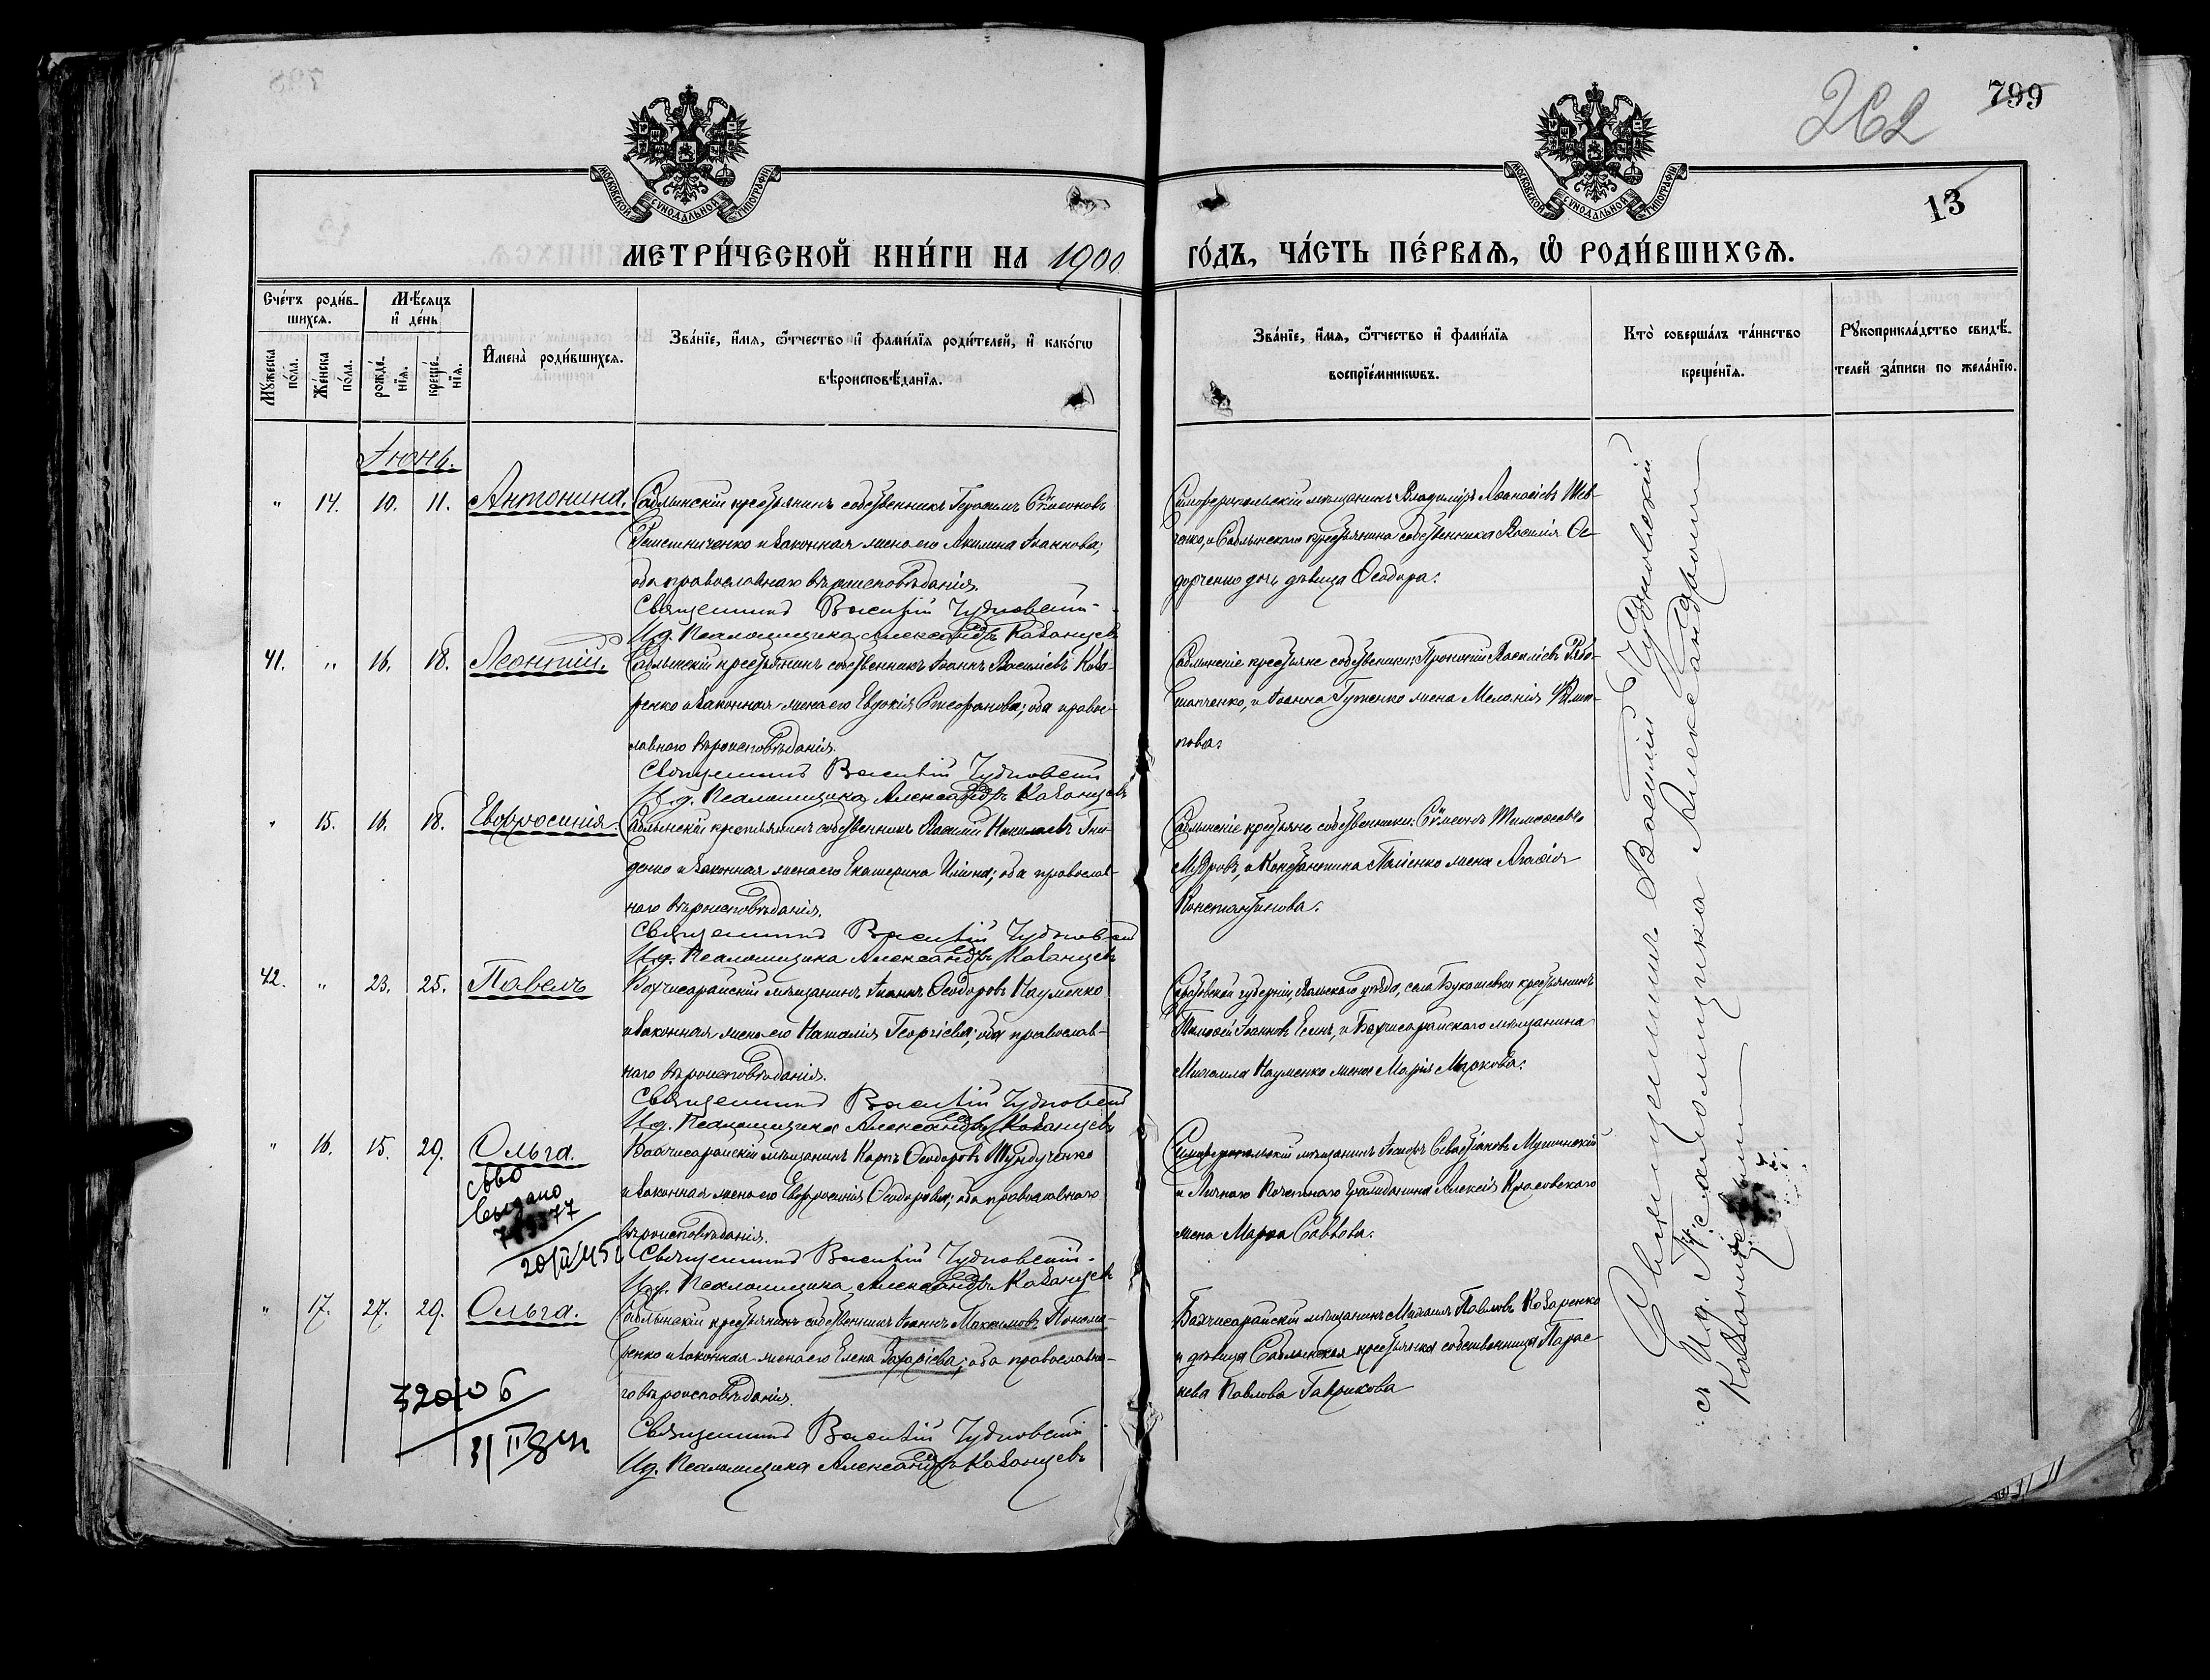 799
262
13
МОСКОВСКОЙ СѴНОДАЛЬНОЙ ТИПОГРАФІИ
МОСКОВСКОЙ СѴНОДАЛЬНОЙ ТИПОГРАФІИ
МЕТРИ́ЧЕСКОЙ КНИ́ГИ НА 1900 ГО́ДЪ, ЧА́СТЬ ПЕ́РВАѦ, Ѽ РОДИ́ВШИХСѦ.
Сче́тъ роди́в-
шихсѧ.
Мꙋ́жеска по́ла.
Же́нска по́ла.
Мѣ́сѧцъ
и҆ де́нь
рожде́-
нїѧ.
креще́-
нїѧ.
И҆мена̀ роди́вшихсѧ.
Зва́нїе, и҆́мѧ, ѻ҆́тчество и҆ фами́лїѧ роди́телей, и҆ како́гѡ
вѣроисповѣ́данїѧ.
Зва́нїе, и҆́мѧ, ѻ҆́тчество и҆ фами́лїѧ
воспрїе́мникѡвъ.
Кто̀ соверша́лъ та́инство
креще́нїѧ.
Рꙋкоприкла́дство свидѣ́-
телей за́писи по жела́нїю.
Іюнь.
" 14. 10. 11. Антонина.
Саблынскій крестьянинъ собственникъ Герасимъ Сѵмеоновъ
и законная жена его Акилина Іоаннова;
оба православнаго вѣроисповѣданія.
Священникъ Василій Чудновскій
И.д. Псаломщика Александръ Казанцевъ
Симферопольскій мѣщанинъ Владиміръ Аѳанасіевъ Шев-
ченко, и Саблынскаго крестьянина собственника Василія Ѳе-
дорченко дочь дѣвица Ѳеодора.
41. " 16. 18. Леонтій.
Саблынскій крестьянинъ собственникъ Іоаннъ Василіевъ Коза-
ренко и законная жена его Евдокія Стефанова; оба правос-
лавнаго вѣроисповѣданія.
Священникъ Василій Чудновскій
И.д. Псаломщика Александръ Казанцевъ
Саблынскіе крестьяне собственники: Прокопій Василіевъ Рябо-
шапченко, и Іоанна Гуженко жена Меланія Филип-
пова.
" 15. 16. 18. Евфросинія.
Саблынскій крестьянинъ собственникъ Василій Гни-
денко и законная жена его Екатерина Ильина; оба православ-
наго вѣроисповѣданія.
Священникъ Василій Чудновскій
И.д. Псаломщика Александръ Казанцевъ
Саблынскіе крестьяне собственники: Сѵмеонъ Тимоѳеевъ
Мудровъ, и Константина жена Агафія
Константинова.
42. " 23. 25. Павелъ
Бахчисарайскій мѣщанинъ Іоаннъ Ѳеодоровъ Науменко
и законная жена его Наталія Георгіева; оба православ-
наго вѣроисповѣданія.
Священникъ Василій Чудновскій
И.д. Псаломщика Александръ Казанцевъ
губерніи, уѣзда, села крестьянинъ
Тимоѳей Іоанновъ Есинъ, и Бахчисарайскаго мѣщанина
Михаила Науменко жена Марія Маркова.
" 16. 15. 29. Ольга.
Бахчисарайскій мѣщанинъ Карпъ Ѳеодоровъ Шундученко
и законная жена его Евфросинія Ѳеодорова; оба православнаго
вѣроисповѣданія.
Священникъ Василій Чудновскій
И.д. Псаломщика Александръ Казанцевъ
Симферопольскій мѣщанинъ Іосифъ Севастіановъ
и Личнаго Почетнаго Гражданина Алексія Красовскаго
жена Марѳа Саввова.
выдано
" 17. 27. 29. Ольга.
Саблынскій крестьянинъ собственникъ Іоаннъ Максимовъ Понома-
ренко и законная жена его Елена Захаріева; оба православна-
го вѣроисповѣданія.
Священникъ Василій Чудновскій
И.д. Псаломщика Александръ Казанцевъ
Бахчисарайскій мѣщанинъ Михаилъ Павловъ Козаренко
и дѣвица Саблынская крестьянка собственница Парас-
кева Павлова Гаврикова
Священникъ Василій Чудновскій
съ И.д. Псаломщика Александромъ
Казанцевымъ